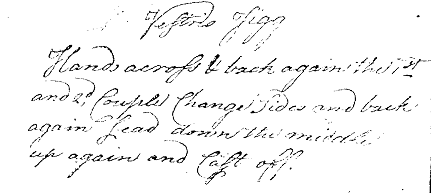 Vestris Jigg
Hands across & back again the 1st
and 2d Couple Change sides and back
again Lead down the middle
up again and Cast off.